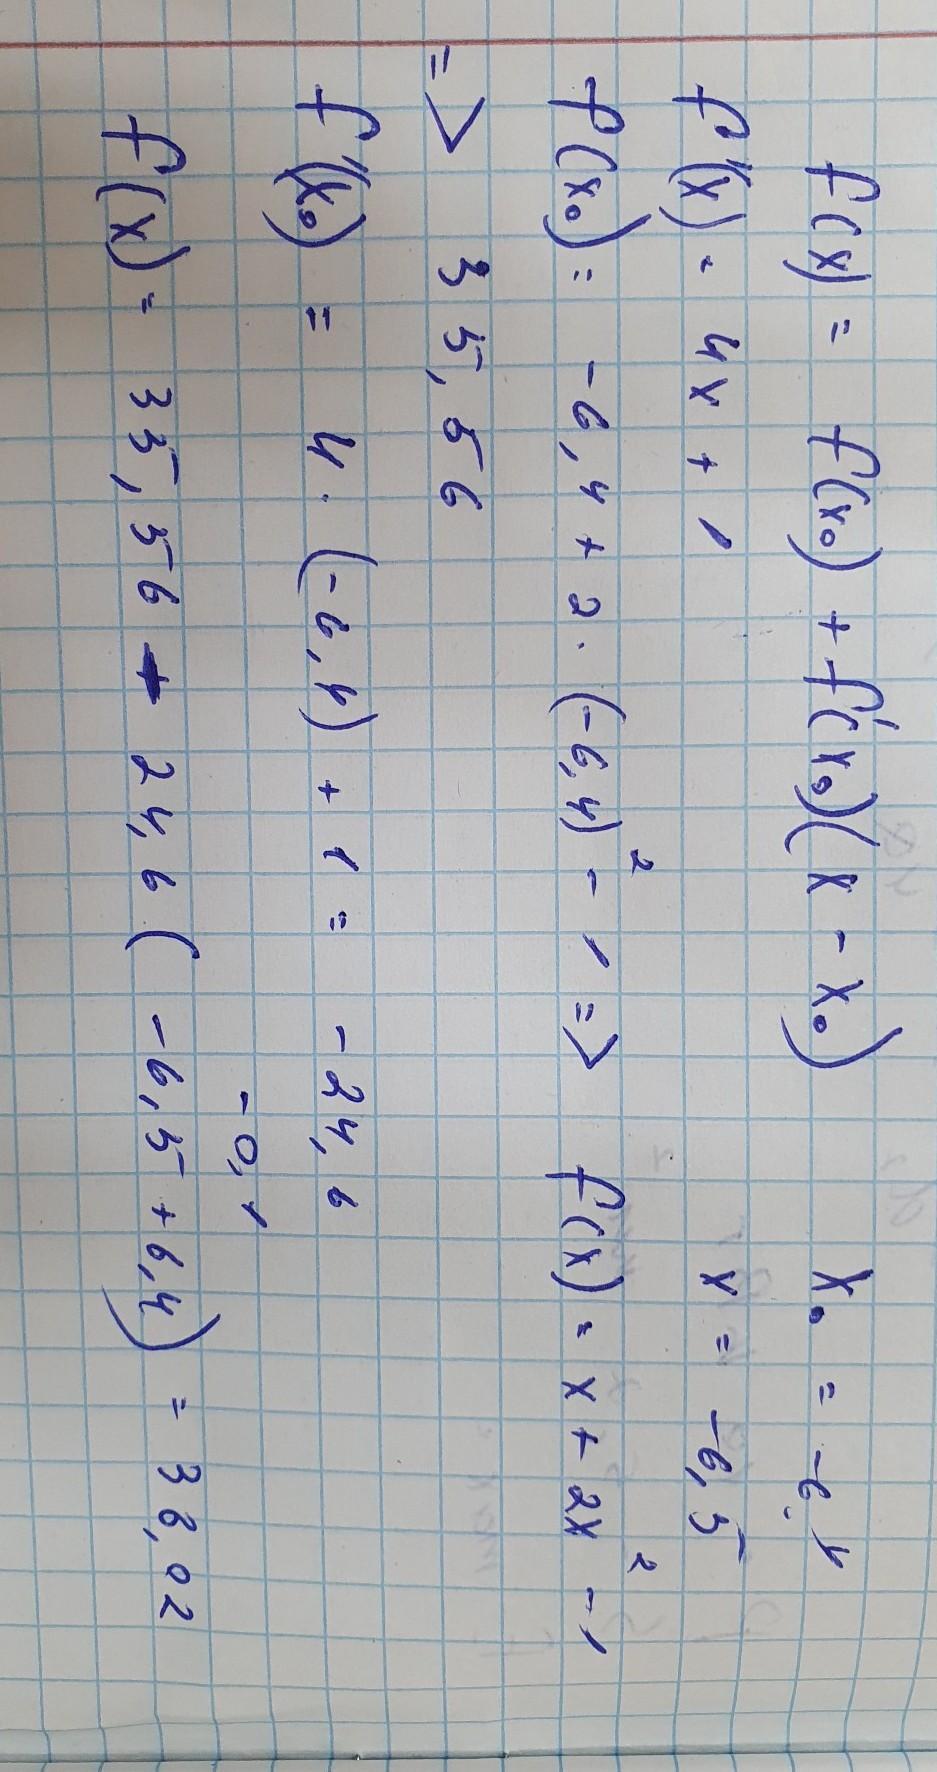 f(x) = f(x₀) + f'(x₀)(x - x₀) x₀ = -6,4
f'(x) = 4x + 1 x = -6,5
f(x₀) = -6,4 + 2·(-6,4)² - 1 => f(x) = x + 2x² - 1
=> 35,56
f'(x₀) = 4·(-6,4) + 1 = -24,6
-0,1
f(x) = 35,56 + 24,6 (-6,5 + 6,4) = 38,02